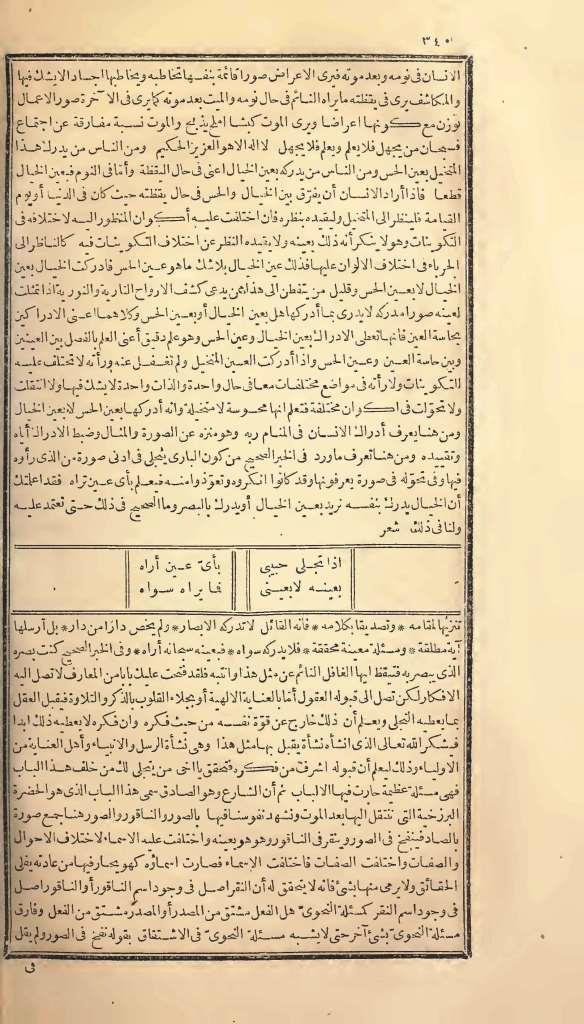 ٣٤٥
الانسان فى نومه وبعد موته فيرى الاعراض صورا قائمة بنفسها تخاطبه ويخاطبها اجساد الايشك فيها
والمكاشف يرى فى يقظته مايراه النائم فى حال نومه والميت بعد موته كما يرى فى الآخرة صور الاعمال
توزن مع كونها اعراضا ويرى الموت كبشا املح يذبح والموت نسبة مفارقة عن اجتماع
فسبحان من يجهل فلا يعلم ويعلم فلا يجهل لا اله الا هو العزيز الحكيم ومن الناس من يدرك هذا
المتخيل بعين الحس ومن الناس من يدركه بعين الخيال اعنى فى حال اليقظة وأما فى النوم فبعين الخيال
قطعا فاذا أراد الانسان أن يفرق بين الخيال والحس فى حال يقظته حيث كان فى الدنيا أو يوم
القيامة فلينظر الى المتخيل وليقيده بنظره فان اختلفت عليه أكوان المنظور اليه لاختلافه فى
التكوينات وهو لا ينكر أنه ذلك بعينه ولا يقيده النظر عن اختلاف التكوينات فيه كالناظر الى
الحرباء فى اختلاف الالوان عليها فذلك عين الخيال بلا شك ما هو عين الحس فادركت الخيال بعين
الخيال لا بعين الحس وقليل من يتفطن الى هذا ممن يدعى كشف الارواح النارية والنورية اذا تمثلت
لعينه صورا مدركة لا يدرى بما أدركها هل بعين الخيال أو بعين الحس وكلاهما اعنى الادراكين
بحاسة العين فانها تعطى الادراك بعين الخيال وعين الحس وهو علم دقيق أعنى العلم بالفصل بين العينين
وبين حاسة العين وعين الحس واذا أدركت العين المتخيل ولم تغفل عنه ورأته لا تختلف عليه
التكوينات ولا رأته فى مواضع مختلفات معا فى حال واحدة والذات واحدة لا يشك فيها ولا انتقلت
ولا تحولت فى اكوان مختلفة فتعلم انها محسوسة لا متخيلة وانه أدركها بعين الحس لا بعين الخيال
ومن هنا يعرف أدراك الانسان فى المنام ربه وهو منزه عن الصورة والمثال وضبط الادراك اياه
وتقييده ومن هنا تعرف ما ورد فى الخبر الصحيح من كون البارى يتجلى فى ادنى صورة من الذى رأوه
فيها وفى تحوله فى صورة يعرفونها وقد كانوا انكروه وتعوذوا منه فيعلم بأى عين تراه فقد اعلمتك
أن الخيال يدرك بنفسه نريد بعين الخيال أو يدرك بالبصر وما الصحيح فى ذلك حتى تعتمد عليه
ولنا فى ذلك شعر
اذا تجلى حبيبى بأى عين أراه
بعينه لا بعينى فما يراه سواه
تنزيها لمقامه * وتصديقا بكلامه * فانه القائل لا تدركه الابصار * ولم يخص دارا من دار * بل أرسلها
آية مطلقة * ومسئلة معينة محققة * فلا يدركه سواه * فبعينه سبحانه أراه * وفى الخبر الصحيح كنت بصره
الذى يبصر به فتيقظ ايها الغافل النائم عن مثل هذا وانتبه فلقد فتحت عليك بابا من المعارف لا تصل اليه
الافكار لكن تصل الى قبوله العقول أما بالعناية الالهية أو بجلاء القلوب بالذكر والتلاوة فيقبل العقل
بما يعطيه التجلى ويعلم أن ذلك خارج عن قوة نفسه من حيث فكره وان فكره لا يعطيه ذلك ابدا
فيشكر الله تعالى الذى انشأه نشأة يقبل بها مثل هذا وهى نشأة الرسل والانبياء وأهل العناية من
الاولياء وذلك ليعلم أن قبوله اشرف من فكره فتحقق يا اخى من يتجلى لك من خلف هذا الباب
فهى مسئلة عظيمة حارت فيها الالباب ثم أن الشارع وهو الصادق سمى هذا الباب الذى هو الحضرة
البرزخية التى تنتقل اليها بعد الموت ونشهد نفوسنا فيها بالصور والناقور والصور هنا جمع صورة
بالصاد فينفخ فى الصور وينقر فى الناقور وهو هو بعينه واختلفت عليه الاسماء لاختلاف الاحوال
والصفات واختلفت الصفات فاختلفت الاسماء فصارت اسماؤه كهو يحار فيها من عادته يفلى
الحقائق ولا يرمى منها بشئ فانه لا يتحقق له أن النقر اصل فى وجود اسم الناقور أو الناقور اصل
فى وجود اسم النقر كمسئلة النحوى هل الفعل مشتق من المصدر أو المصدر مشتق من الفعل وفارق
مسئلة النحوى بشئ آخر حتى لا يشبه مسئلة النحوى فى الاشتقاق بقوله نفخ فى الصور ولم يقل
فى